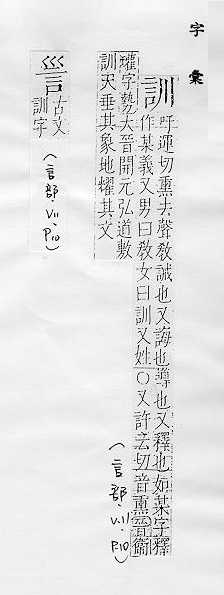 字彙
訓
呼運切熏去聲教誡也又誨也導也又釋也如某字釋
作某義又男曰教女曰訓又姓○又許云切音熏晉衞
(言部.V.11.P.10)
瓘字勢大晉開元弘道敷
訓天垂其象地耀其文
古文
訓字
(言部.VII P.10)